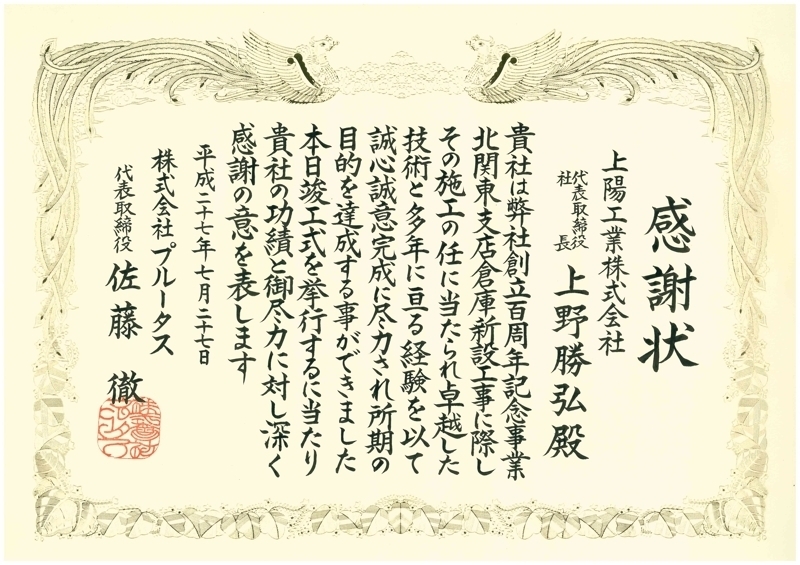 感謝状
上陽工業株式会社
代表取締役
社長
上野勝弘殿
貴社は弊社創立百周年記念事業
北関東支店倉庫新設工事に際し
その施工の任に当たられ卓越した
技術と多年に亘る経験を以て
誠心誠意完成に尽力され所期の
目的を達成する事ができました
本日竣工式を挙行するに当たり
貴社の功績と御尽力に対し深く
感謝の意を表します
平成二十七年七月二十七日
株式会社プルータス
代表取締役 佐藤 徹